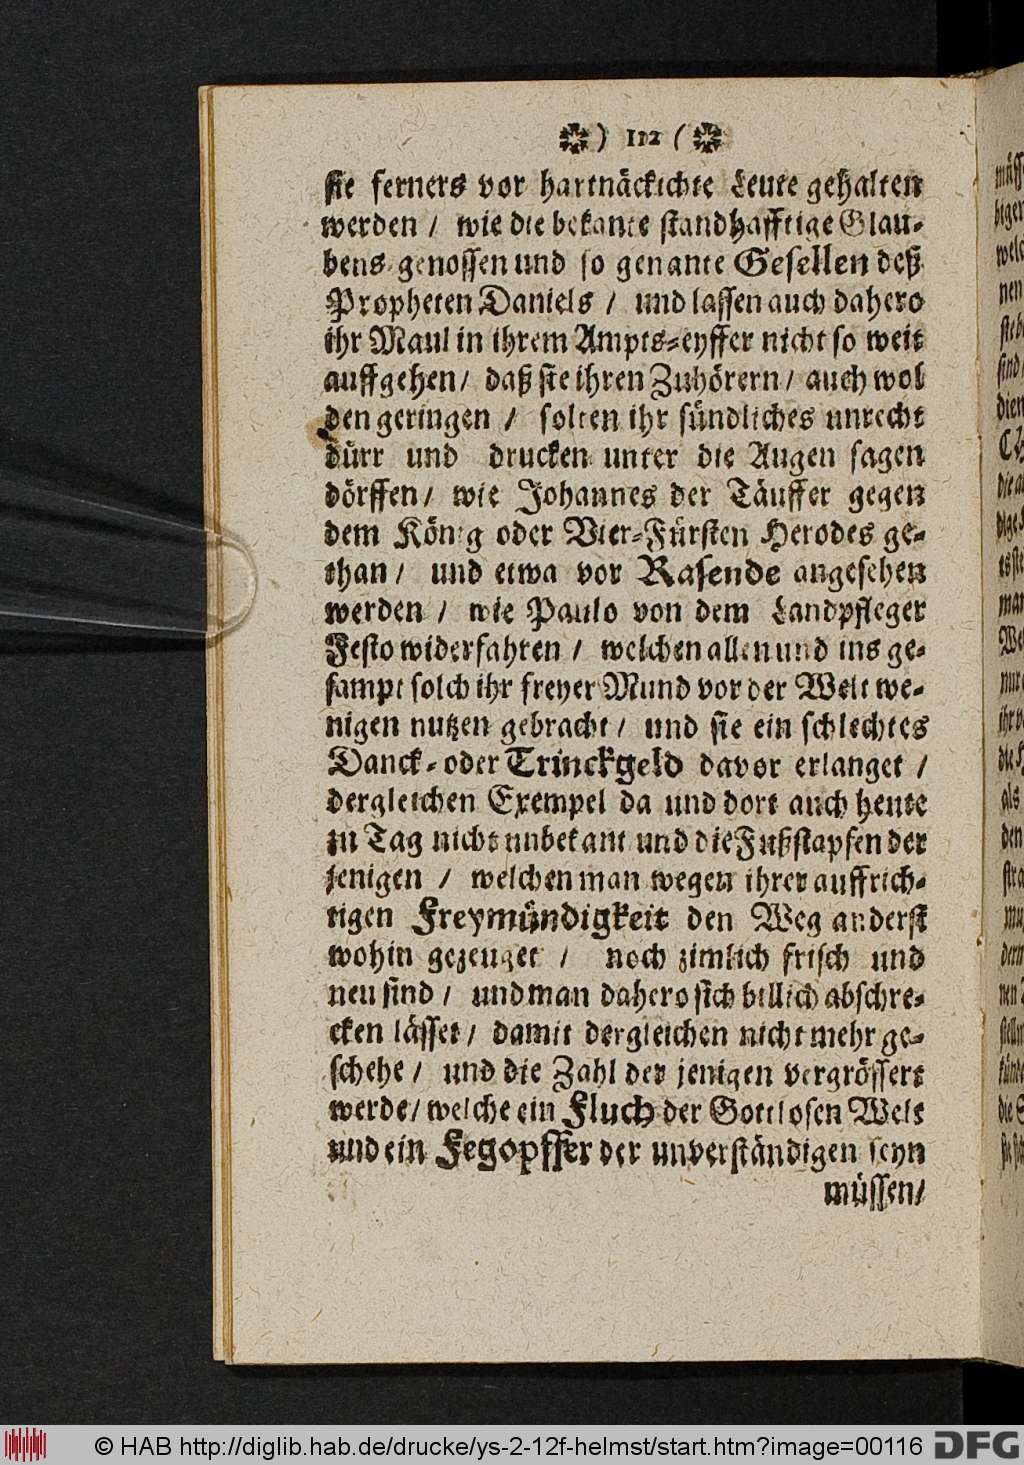 ❁) 112 (❁
sie ferners vor hartnäckichte Leute gehalten
werden / wie die bekante standhafftige Glau-
bens-genossen und so genante Gesellen deß
Propheten Daniels / und lassen auch dahero
ihr Maul in ihrem Ampts-eyffer nicht so weit
auffgehen / daß sie ihren Zuhörern / auch wol
den geringen / solten ihr sündliches unrecht
dürr und drucken unter die Augen sagen
dörffen / wie Johannes der Täuffer gegen
dem König oder Vier-Fürsten Herodes ge-
than / und etwa vor Rasende angesehen
werden / wie Paulo von dem Landpfleger
Festo widerfahren / welchen allen und ins ge-
sampt solch ihr freyer Mund vor der Welt we-
nigen nutzen gebracht / und sie ein schlechtes
Danck- oder Trinckgeld davor erlanget /
dergleichen Exempel da und dort auch heute
zu Tag nicht unbekant und die Fußstapfen der
jenigen / welchen man wegen ihrer auffrich-
tigen Freymündigkeit den Weg anderst
wohin gezeuget / noch zimlich frisch und
neu sind / und man dahero sich billich abschre-
cken lässet / damit dergleichen nicht mehr ge-
schehe / und die Zahl der jenigen vergrössert
werde / welche ein Fluch der Gottlosen Welt
und ein Fegopffer der unverständigen seyn
müssen /
© HAB http://diglib.hab.de/drucke/ys-2-12f-helmst/start.htm?image=00116 DFG